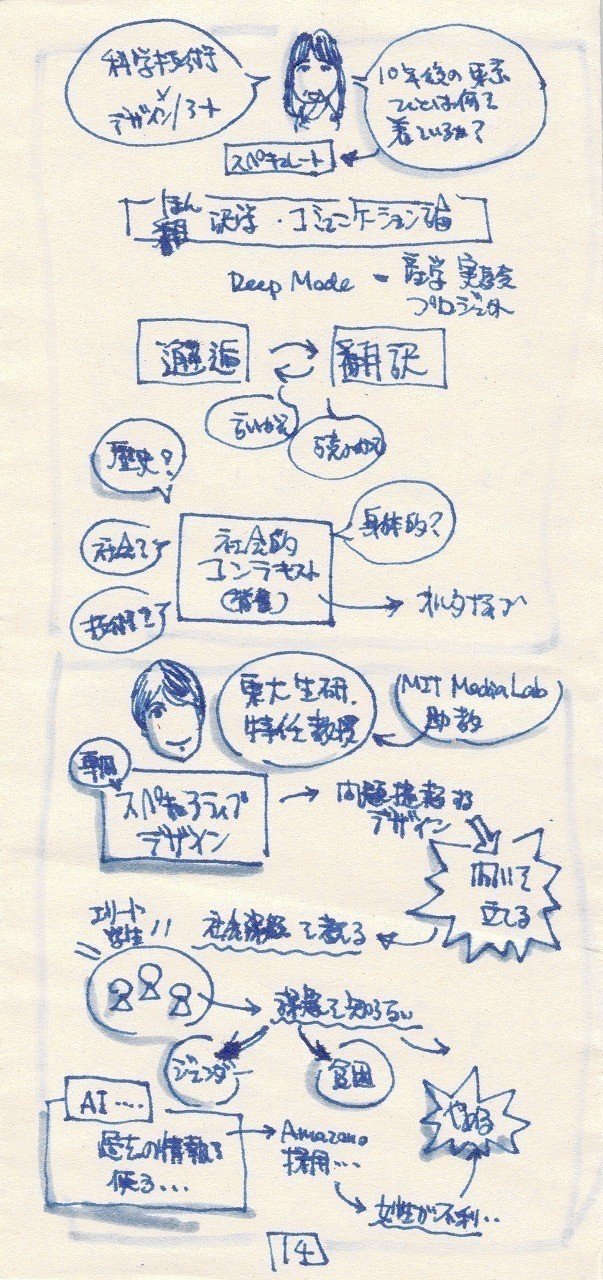 科学技術
×
デザイン/アート
10年後の東京
ひとは何を
着ているか?
スペキュレート
ほん
翻訳学・コミュニケーション論
Deep Mode - 産学
プロジェクト
邂逅
翻訳
言いかえ
歴史?
社会で?
技術で?
社会的
コンテキスト
(背景)
身体的?
オルタナティブ
東大生研.
特任教授
(MIT Media Lab)
助教
専門
スペキュラティブ
デザイン
問題提起する
デザイン
問いを
立てる
エリート
学生!!
社会課題を考える
課題を知らない
ジェンダー
貧困
AI....
過去の情報を
使う...
Amazonの
採用...
やめる
女性が不利..
14